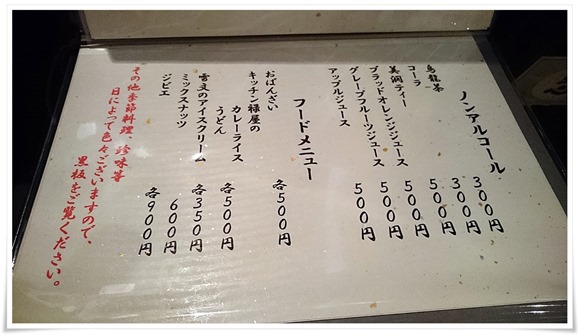 ノンアルコール
烏龍茶 300円
コーラ 300円
美潤ティー 500円
ブラッドオレンジジュース 500円
グレープフルーツジュース 500円
アップルジュース 500円
フードメニュー
おばんざい 各500円
キッチン様屋の
カレーライス
うどん 各500円
雪文のアイスクリーム 各350円
ミックスナッツ 600円
ジビエ 各900円
その他季節料理、珍味等
日によって色々ございますので、
黒板をご覧ください。